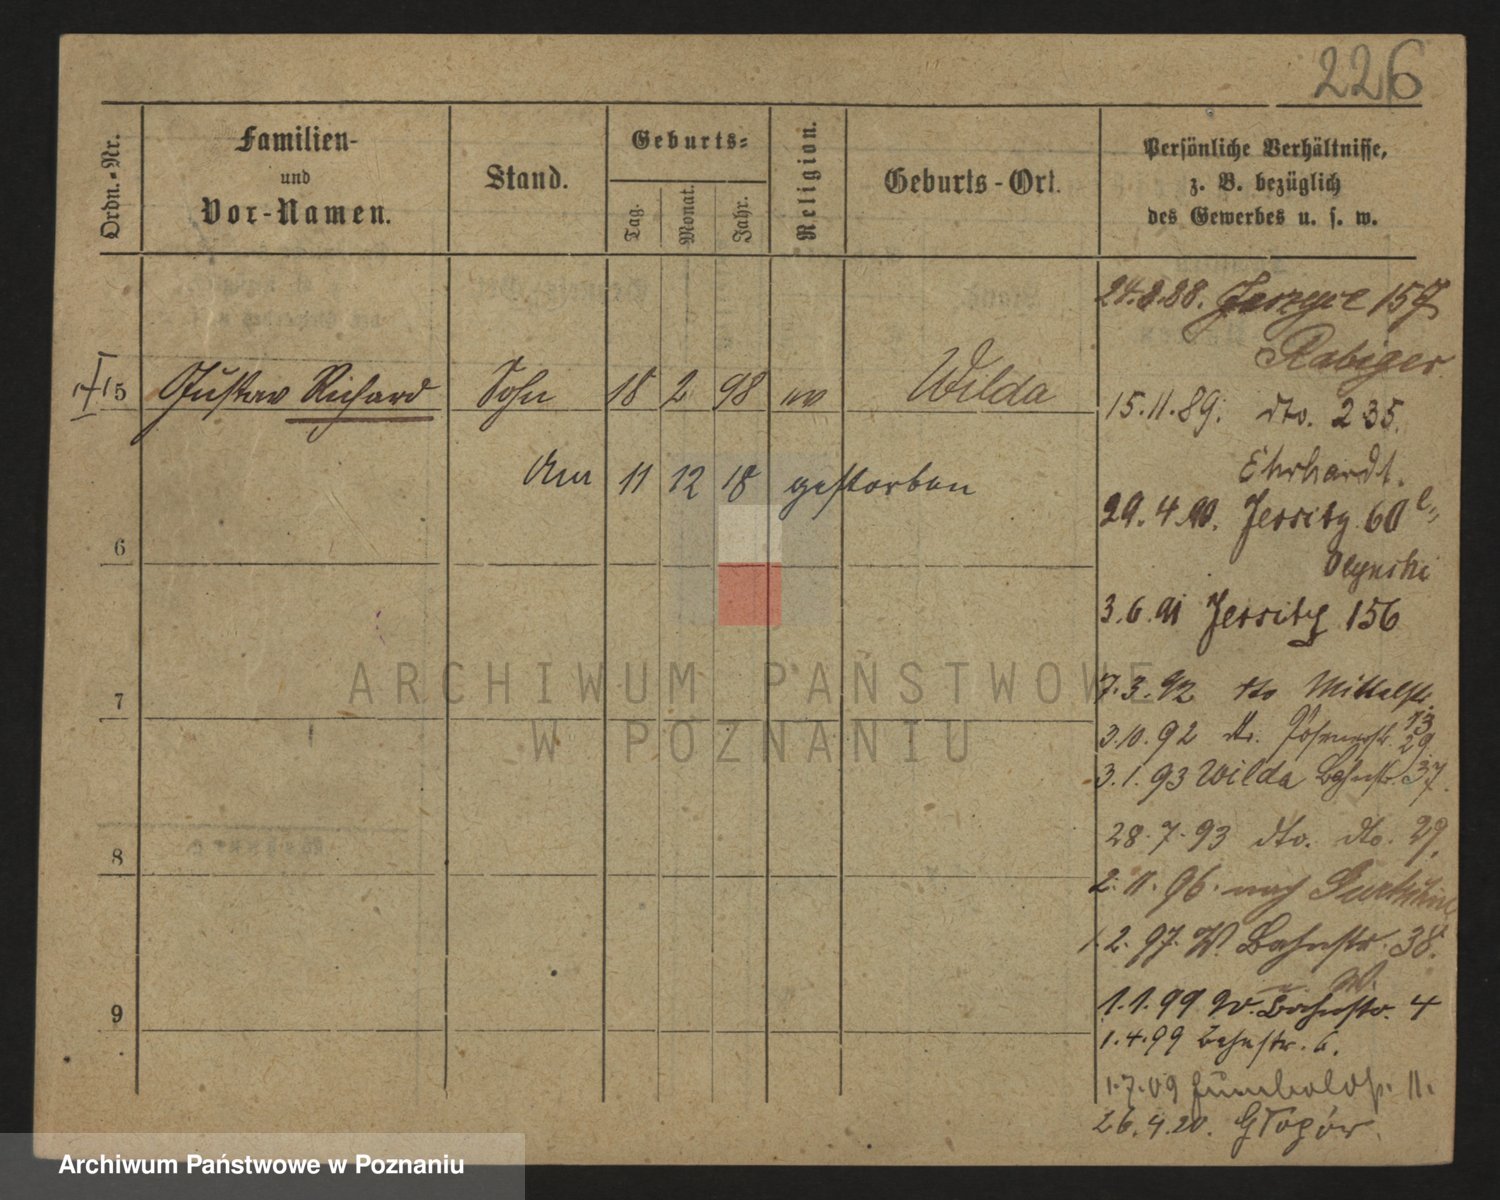 226
Ordn.-Nr.
Familien-
und
Vor-Namen.
Stand.
Geburts-
Tag.
Monat.
Jahr.
Religion.
Geburts-Ort.
Persönliche Verhältnisse,
z. B. bezüglich
des Gewerbes u. s. w.
24.8.88. 157
Rabiger
5 Gustav Richard Sohn 18 2 98 Wilda
15.11.89. dto. 235.
Ehrhardt.
am 11 12 18 gestorben
29.4.90. Jersitz 60
6
3.6.91 Jersitz 156
7
7.3.92 dto Mittelstr.
13
3.10.92 dto. Posenerstr. 29.
3.1.93 Wilda Bahnstr. 37.
28.7.93 dto. dto. 29.
8
2.11.96. nach Gurtschin
1.2.97. W. Bahnstr. 38.
9
1.1.99 W. Bahnstr. 4
1.4.99 Bahnstr. 6.
1.7.09 Humboldstr. 11.
26.4.20. Głogów
ARCHIWUM PAŃSTWOWE
W POZNANIU
Archiwum Państwowe w Poznaniu